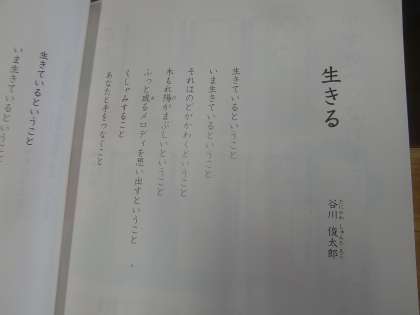 生きる
谷川 俊太郎
たにかわ しゅんたろう
生きているということ
いま生きているということ
それはのどがかわくということ
木もれ陽がまぶしいということ
ふっと或るメロディを思い出すということ
くしゃみすること
あなたと手をつなぐこと
生きているということ
いま生きているということ